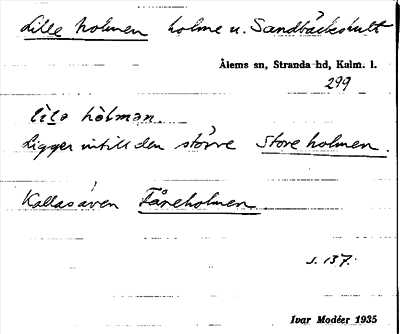 Lille holmen holme u. Sandbäckshult
Ålems sn, Stranda hd, Kalm. l.
299
lìlə hòlmən
Ligger intill den större Store holmen.
Kallas även Fåreholmen
s. 137.
Ivar Modéer 1935